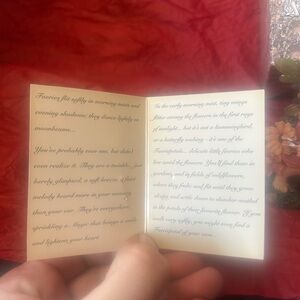 Faeries flit softly in morning mists and
evening shadows; they dance lightly in
moonbeams...
You've probably seen one, but didn't
even realize it. They are a twinkle, just
barely glimpsed, a soft breeze, a faint
melody heard more in your memory
than your ear. They're everywhere,
sprinkling a magic that brings a smile
and lightens your heart.
In the early morning mist, tiny wings
flitter among the flowers in the first rays
of sunlight... but it's not a hummingbird,
or a butterfly waking - it's one of the
delicate little faeries who
live amid the flowers. You'll find them in
gardens, and in fields of wildflowers,
where they frolic and flit until they grow
sleepy and settle down to slumber nestled
in the petals of their favorite flower. If you
walk very softly, you might even find a
of your own...